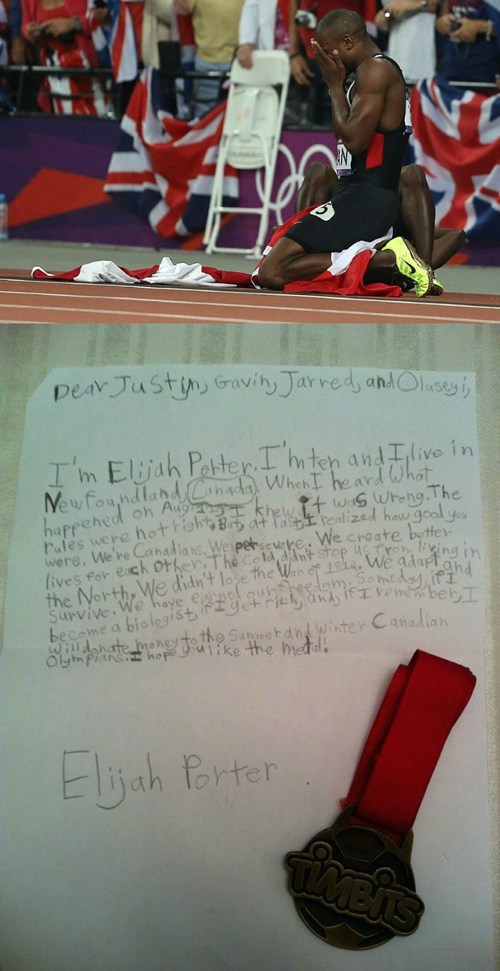 AN
5
Dear Justin, Gavin, Jarred, and Oluseyi,
I'm Elijah Porter. I'm ten and I live in
Newfoundland, Canada. When I heard what
happened on Aug I knew it was wrong. The
rules were not right. But at last I realized how good you
were. We're Canadians. We persevere. We create better
lives for each other. The cold didn't stop us from living in
the North. We didn't lose the War of 1812. We adapt and
survive. We have earned our freedom. Someday, if I
become a biologist, if I get rich, and if I remember, I
will donate money to the Summer and Winter Canadian
Olympians. I hope you like the medal!
Elijah Porter
TIMBITS